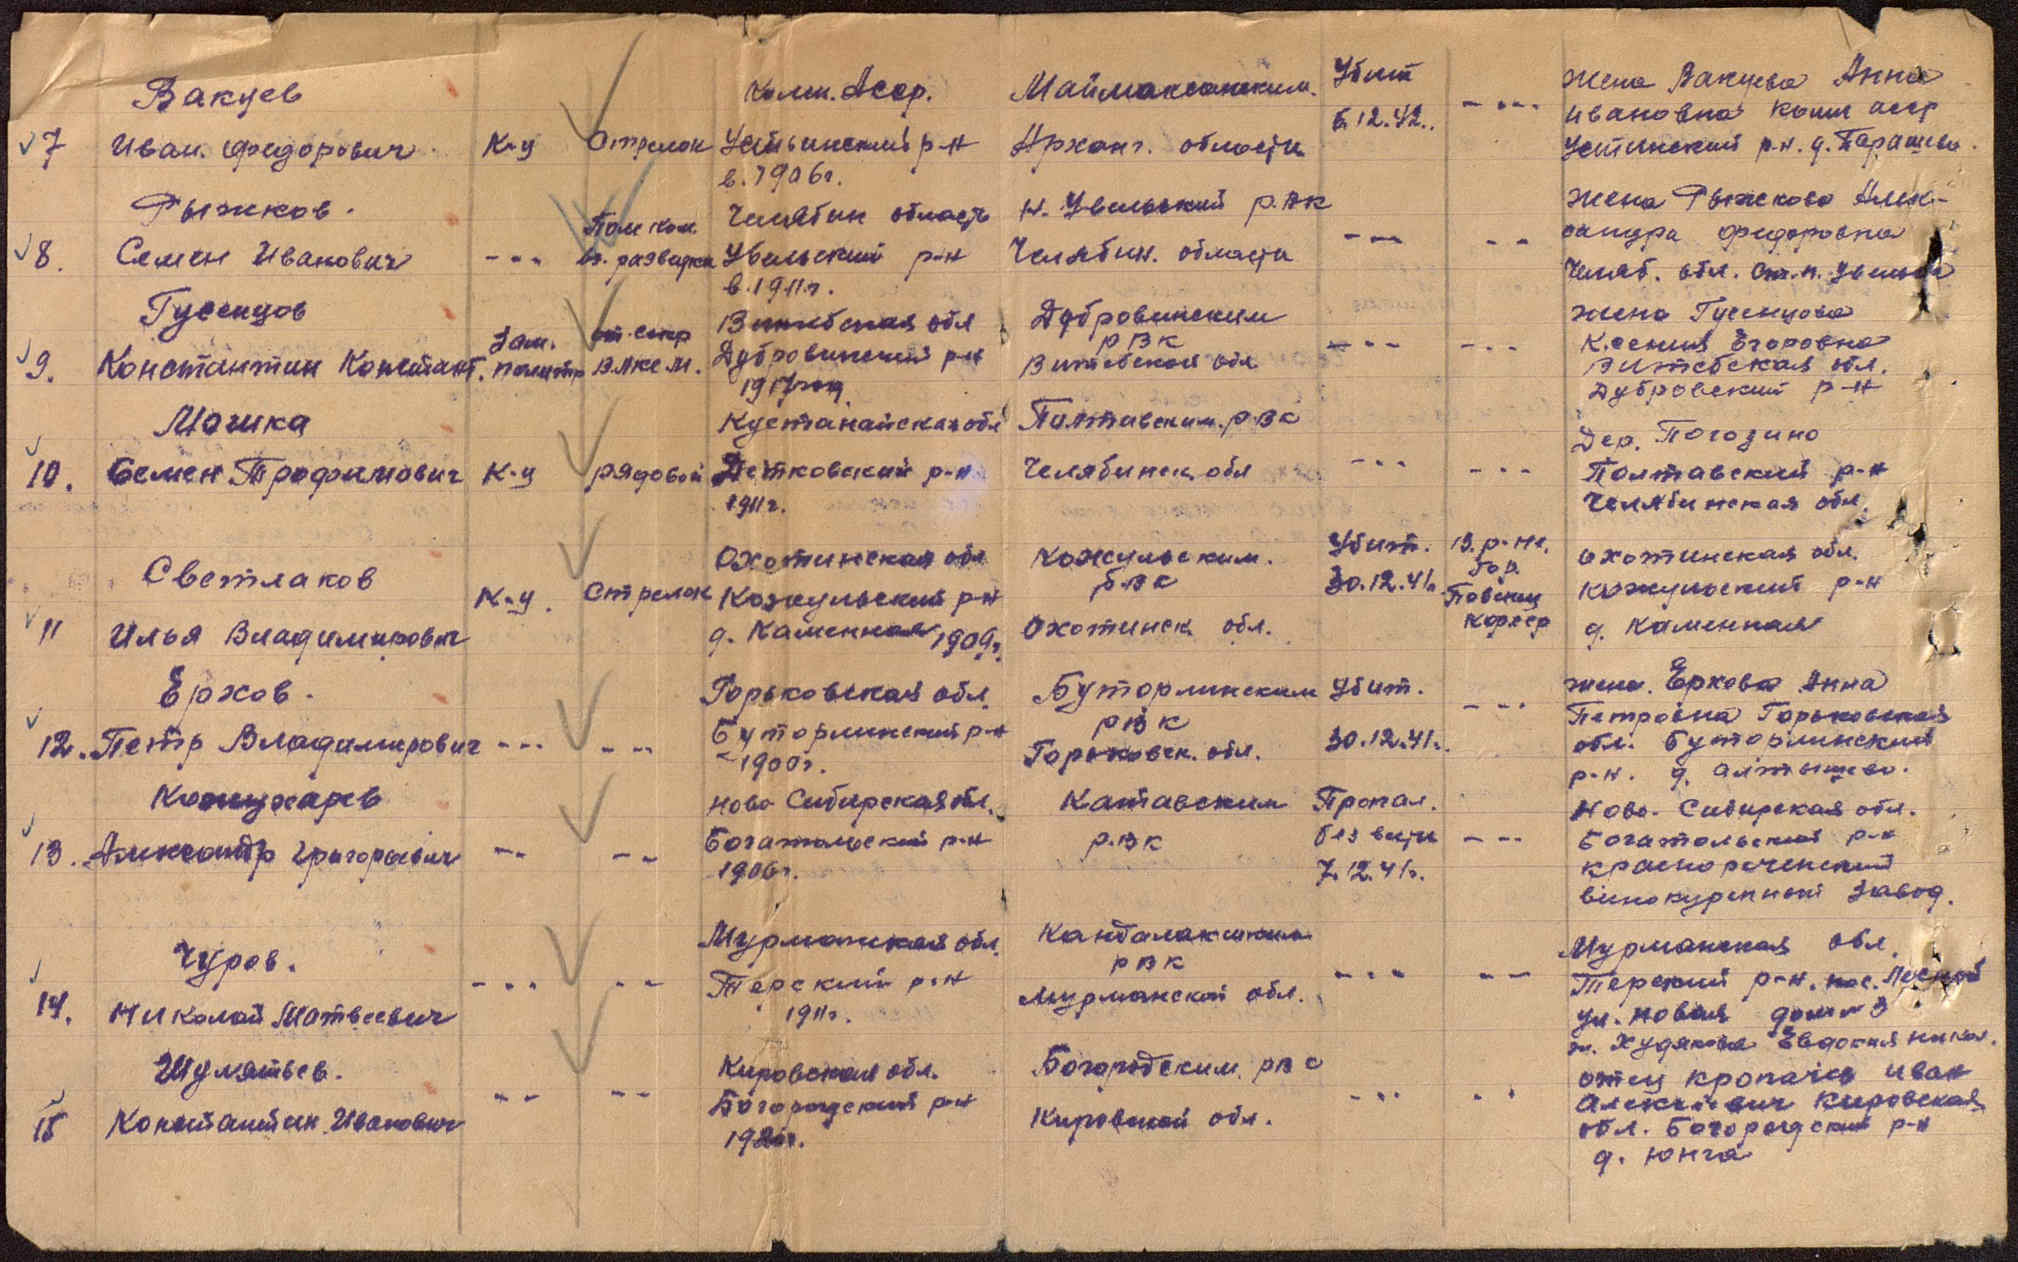 Вакуев
7 Иван. Федорович К-ц Стрелок
Коми. Асср.
Устьинский р-н
в. 1906г.
Маймаксанским.
Арханг. области
Убит
6.12.42.
- - -
жена Вакуева Анна
Ивановна Коми асср
Устинский р.н. д.
Рыжков.
8. Семен Иванович - - -
Пом ком.
вз. разведки
Челябин область
Увельский р-н
в. 1911г.
Н. Увельский р.ВК
Челябин. области
- - -
- -
жена Рыжкова Алек-
сандра Федоровна
Челяб. обл. ст. н. Увелька
Гусенцов
9. Константин Констант.
Зам.
политр
от. секр
ВЛКСМ.
Витебская обл
Дубровинский р-н
1917 год
Дубровинским
РВК
Витебской обл
- - -
- - -
жена Гусенцова
Ксения Егоровна
Витебская обл.
Дубровский р-н
Мочика
10. Семен Трофимович К-ц рядовой
Кустанайская обл
Детковский р-н
1911г.
Полтавским. РВК
Челябинск обл
- - -
- - -
Дер. Погозино
Полтавский р-н
Челябинская обл.
Светлаков
11 Илья Владимирович
К-ц. Стрелок
Охотинская обл
Кожульский р-н
д. Каменная 1909г.
Кожульским.
РВК
Охотинск обл.
Убит.
30.12.41г.
В. р-не.
Гор.
Повенец
Охотинская обл.
Кожульский р-н
д. Каменная
Ерхов.
12. Петр Владимирович - - - - -
Горьковская обл.
Буторлинский р-н
1900г.
Буторлинским
РВК
Горьковск. обл.
Убит.
30.12.41г.
- - -
жена. Ерхова Анна
Петровна Горьковская
обл. Буторлинский
р-н. д. Алтышево.
Кожухарев
13. Александр Григорьевич - - - -
Ново Сибирская обл.
Богатольский р-н
1906г.
Катавским
Р.ВК
Пропал.
без вести
7.12.41г.
- - -
Ново-Сибирская обл.
Богатольский р-н
Краснореченский
винокуренный завод.
Чуров.
14. Николай Матвеевич - - - - -
Мурманская обл.
Терский р-н
1911г.
Кандалакшским
РВК
Мурманской обл.
- - -
- -
Мурманская обл.
Терский р-н. пос. Лесной
ул. Новая дом № 3
ж. Худякова Евдокия Никол.
Шулятьев.
15 Константин Иванович - - - -
Кировская обл.
Богородский р-н
Богородским. РВС
Кировской обл.
- - -
- -
отец Кропачев Иван
Алексеевич Кировская
обл. Богородский р-н
д. Юнга